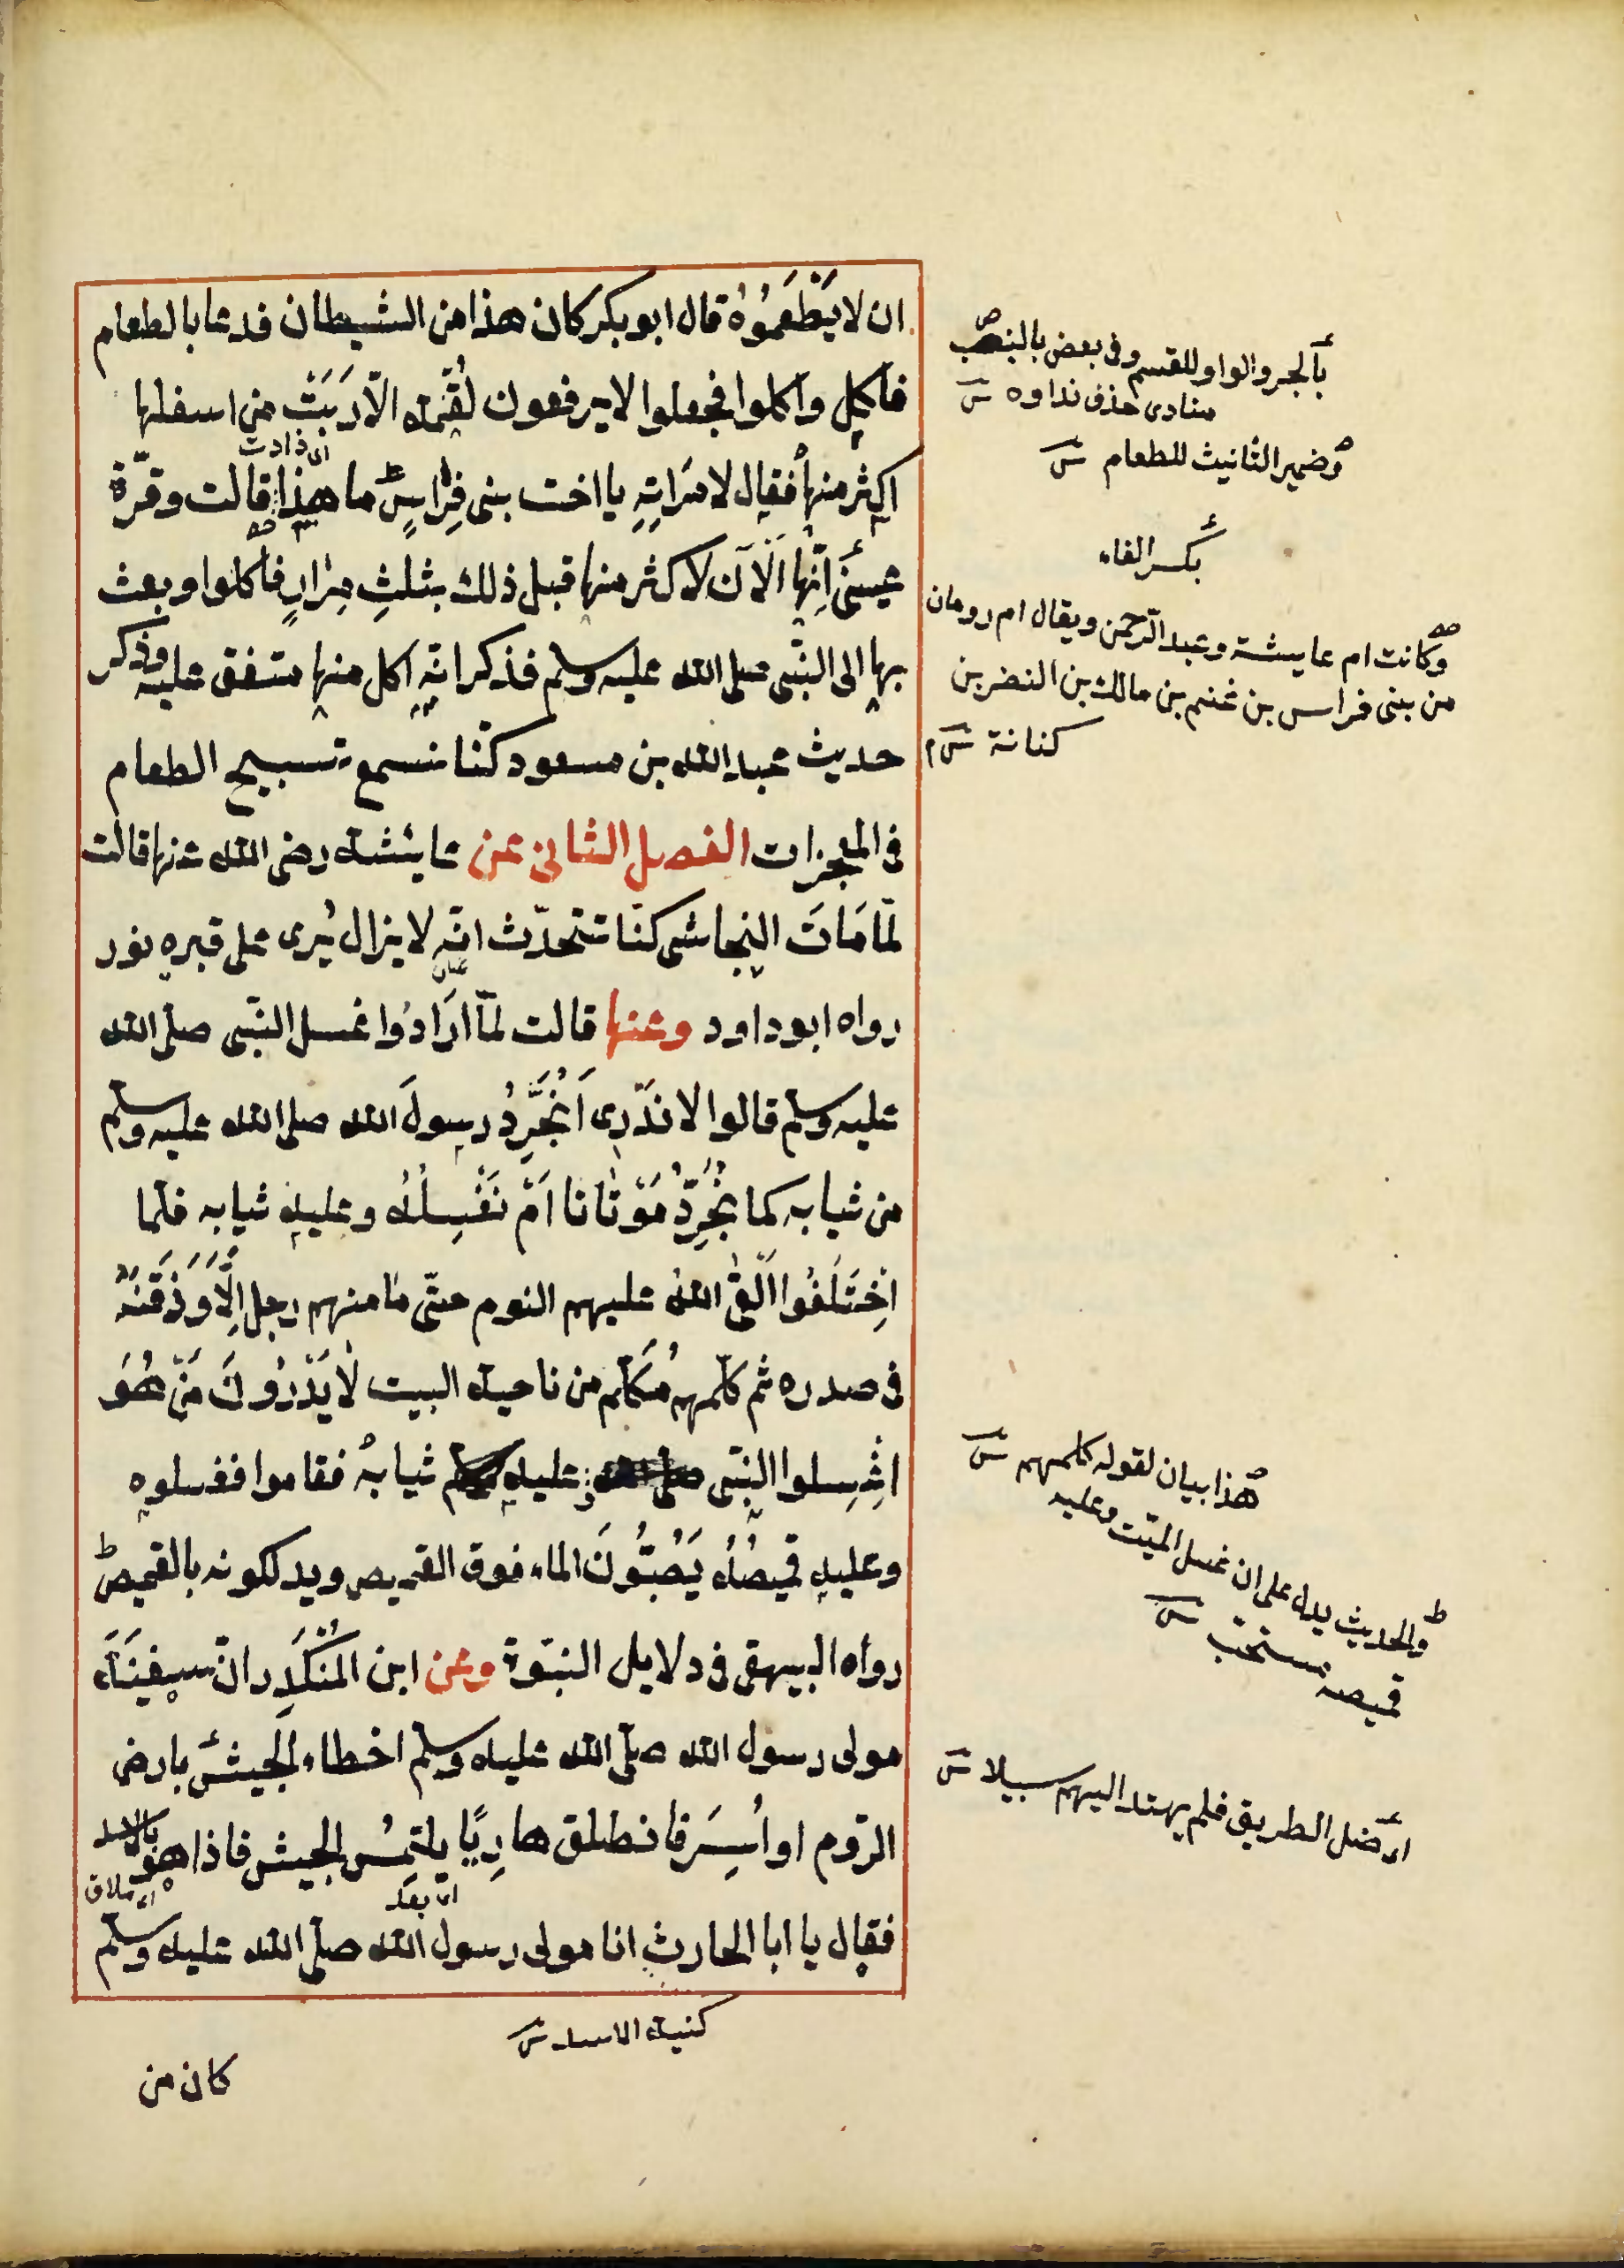 ان لا يَطْعَمُوْهُ قال ابو بكر كان هذا من الشيطان فدعا بالطعام
فاكل واكلوا فجعلوا لا يرفعون لُقْمَة الّا رَبَتْ من اسفلها
اى زادت
اكثر منها فقال لامرَاتِهِ يا اخت بنى فِرَاسٍ ما هذا قالت وقرّة
عينى اِنّها اَلْآن لاكثر منها قبل ذلك بثلثِ مِرَارٍ فاكلوا وبعث
بها الى النّبى صلى الله عليه وسلم فذكر انّه اكل منها متفق عليه وذكر
حديث عبد الله بن مسعود كنّا نسمع تسبيح الطعام
فى المعجزات الفصل الثانى عن عايشة رضى الله عنها قالت
لمّا مَاتَ النجاشى كنّا نتحدّث انّه لا يزال يُرى على قبره نور
رواه ابو داود وعنها قالت لمّا ارَادُوا غسل النّبى صلى الله
عليه وسلم قالوا لا نَدْرِى اَنُجَرِّدُ رسولَ الله صلى الله عليه وسلم
من ثيابه كما نُجَرِّدُ مَوْتَانا اَمْ نَغْسِلُهُ وعليه ثيابه فلما
اِخْتَلَفُوا اَلْقَى اللهُ عليهم النوم حتّى ما منهم رجل اِلَّا وَذَقَنُهُ
فى صدره ثم كلّمهم مُكَلّم من ناحية البيت لَا يَدْرُونَ مَنْ هُوَ
اغْسِلوا النبّى وعليه ثيابهُ فقاموا فغسلوه
وعليه قميصُهُ يَصُبُّونَ الماء فوق القميص ويدلكونه بالقميص
رواه البيهقى فى دلايل النبّوة وعن ابن المُنْكَدِر انّ سفينَةَ
مولى رسول الله صلى الله عليه وسلم اخطاء الجيشَ بارض
الرّوم او اُسِرَ فانطلق هارِبًا يلتمِسُ الجيش فاذا هو بالاسد
اى بعد
فقال يا ابا الحارث انا مولى رسول الله صلى الله عليه وسلم
كنية الاسد
كان من
بالجر والواو للقسم وفى بعض بالنصب
منادى حذف نداوه
وضمير التانيث للطعام
بكسر الفاء
وكانت ام عايشة وعبد الرّحمن ويقال ام رومان
من بنى فراس بن غنم بن مالك بن النضر بن
كنانة
هذا بيان لقوله كلمهم
والحديث يدل على ان غسل الميّت وعليه
قميصه مستحب
اى ضل الطريق فلم يهتد اليهم سبيلا